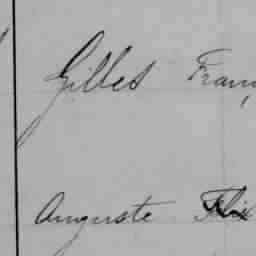 Gilles Fran
Auguste Félix